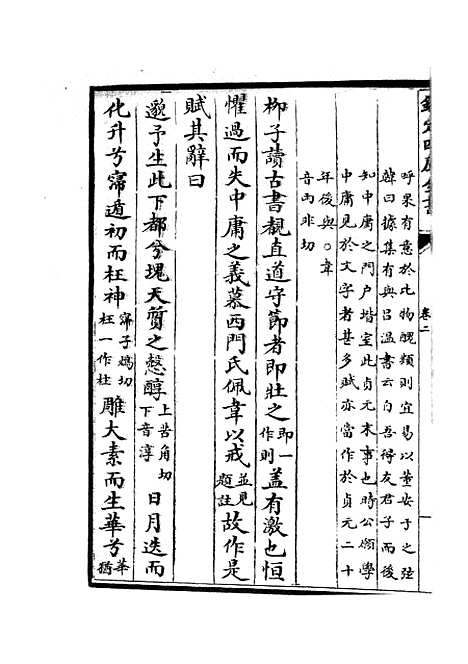 欽定四庫全書
卷二
呼果有意於比物醜類則宜易以董安于之弦
韓曰據集有與呂温書云自吾得友君子而後
知中庸之門户堦室此貞元末事也時公頗學
中庸見於文字者甚多賦亦當作於貞元二十
年後與〇韋
音雨非切
柳子讀古書覩直道守節者即壯之即一作則蓋有激也恒
懼過而失中庸之義慕西門氏佩韋以戒並見題註故作是
賦其辭曰
邈予生此下都兮塊天質之慤醇上苦角切下音淳日月迭而
化升兮寪遁初而枉神寪子㷄切枉一作柱雕大素而生華兮華猶